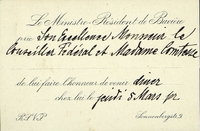 Le Ministre-Résident de Bavière
prie Son Excellence Monsieur le
Conseiller Fédéral et Madame Comtesse
de lui faire l'honneur de venir diner
chez lui le jeudi 5 Mars pr
R.S.V.P. Sonnenbergstr. 9